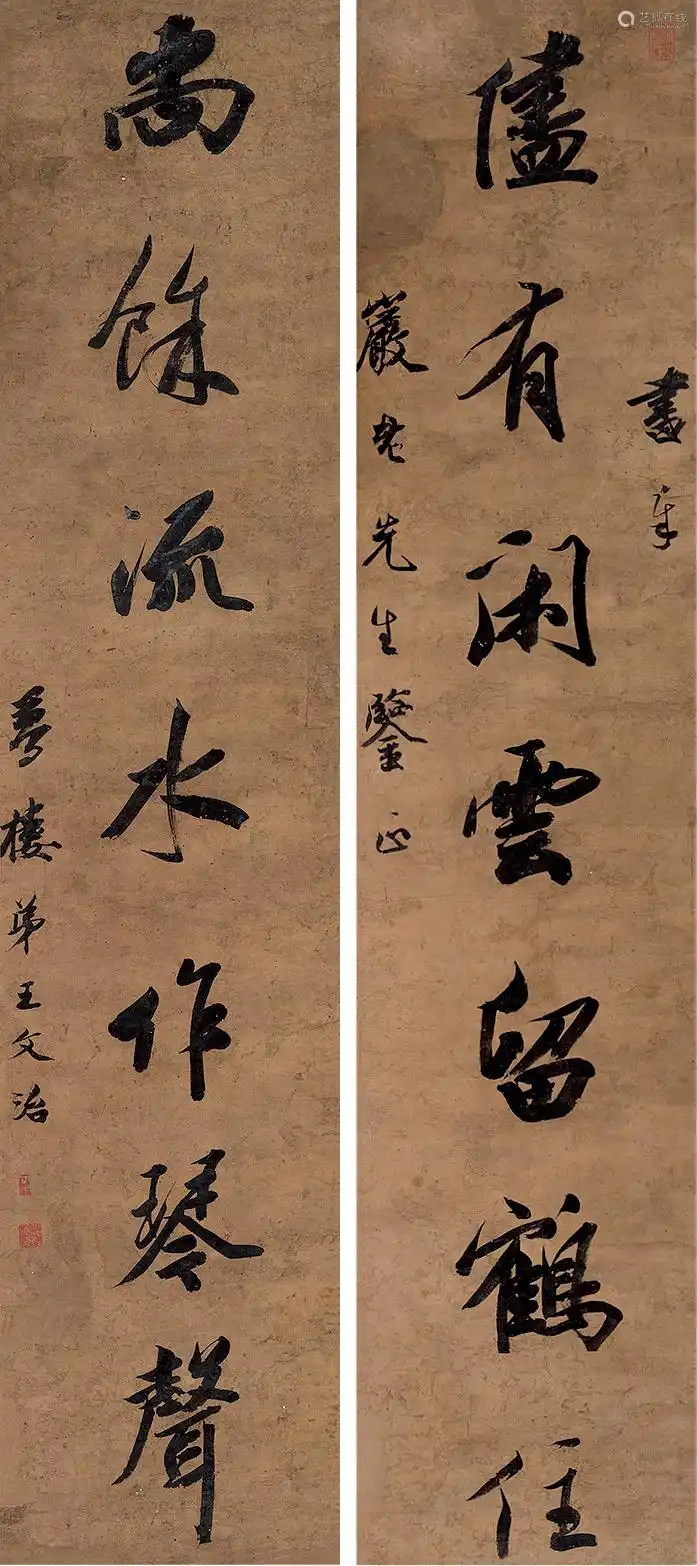 書奉
儘有閑雲留鶴住
巖老先生鑒正
尚餘流水作琴聲
夢樓弟王文治